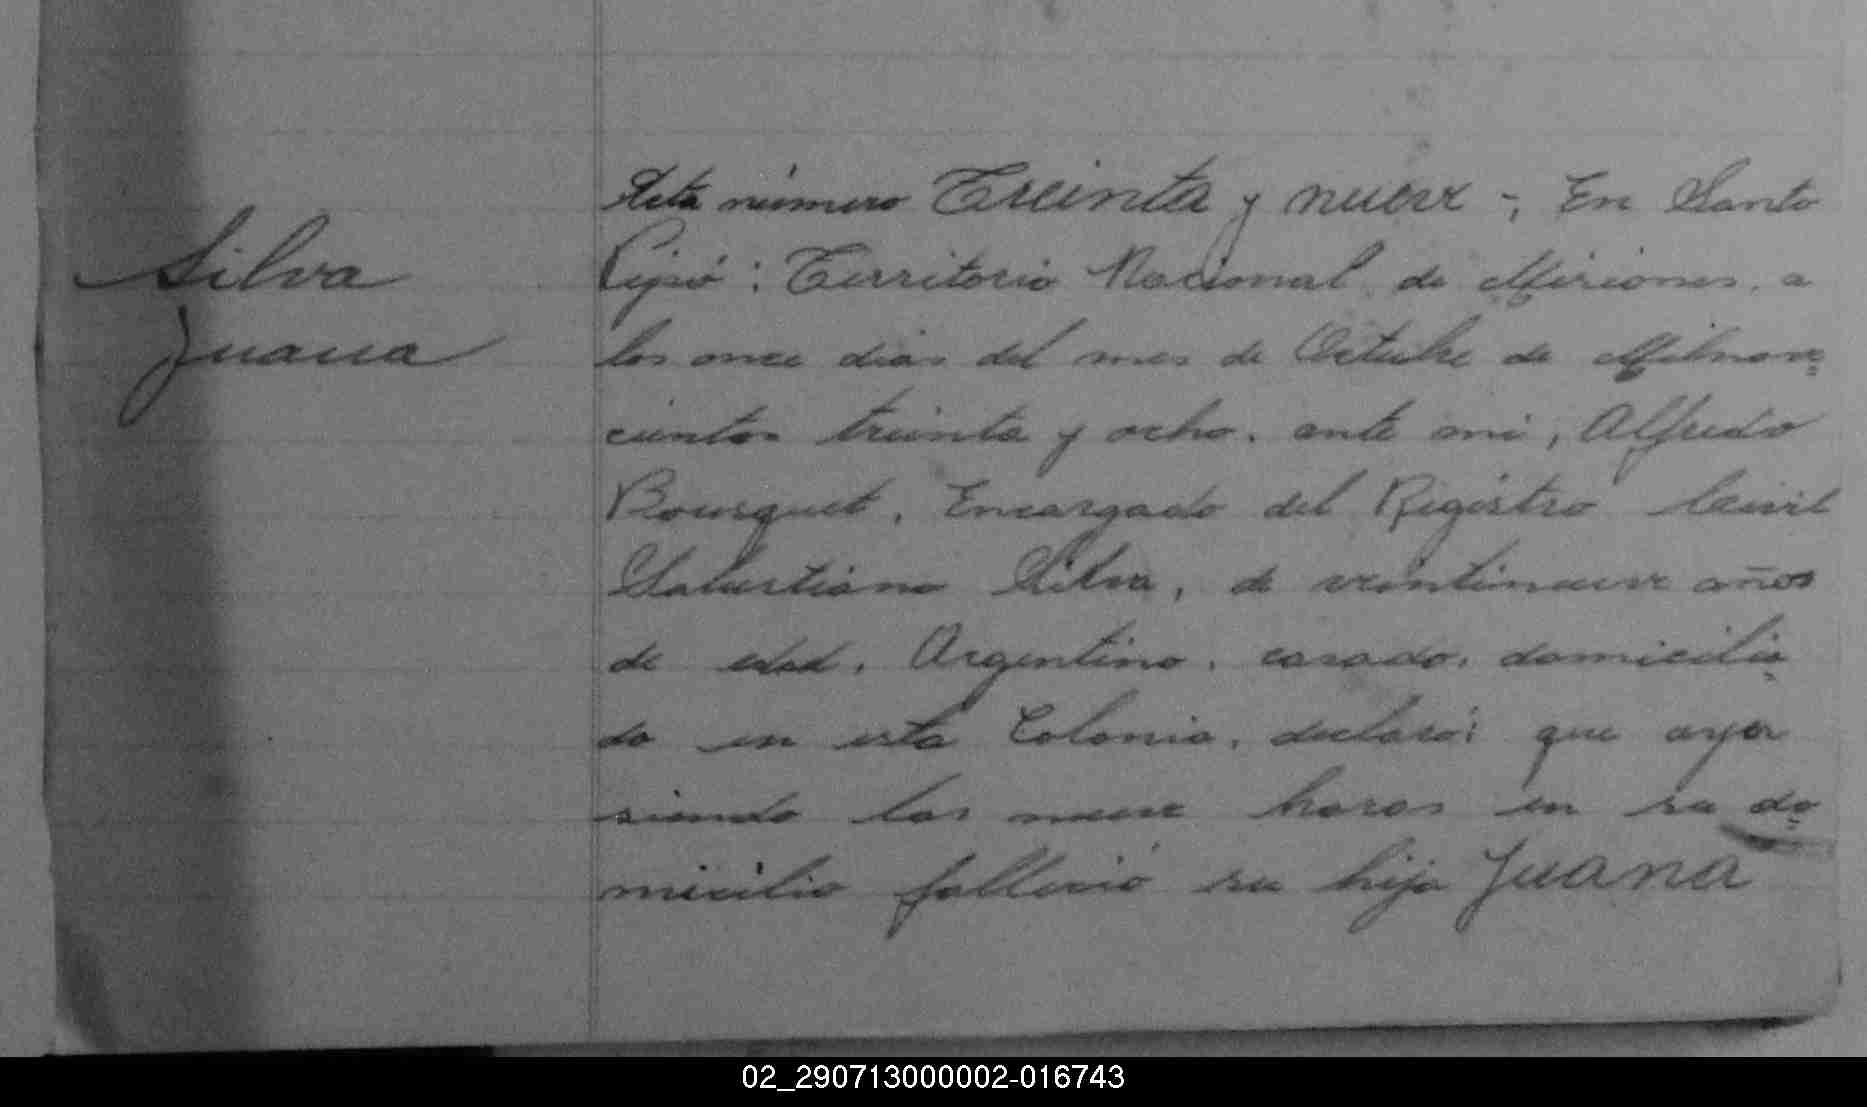 Silva
Juana
Acta número Treinta y nueve -; En Santo
Pipó: Territorio Nacional de Misiones, a
los once dias del mes de Octubre de Milnove=
cientos treinta y ocho, ante mi, Alfredo
Bousquet, Encargado del Registro Civil
Salustiano Silva, de veintinueve años
de edad, Argentino, casado, domicilia=
do en esta Colonia, declaró: que ayer
siendo las nueve horas en su do=
micilio falleció su hija Juana
02_290713000002-016743